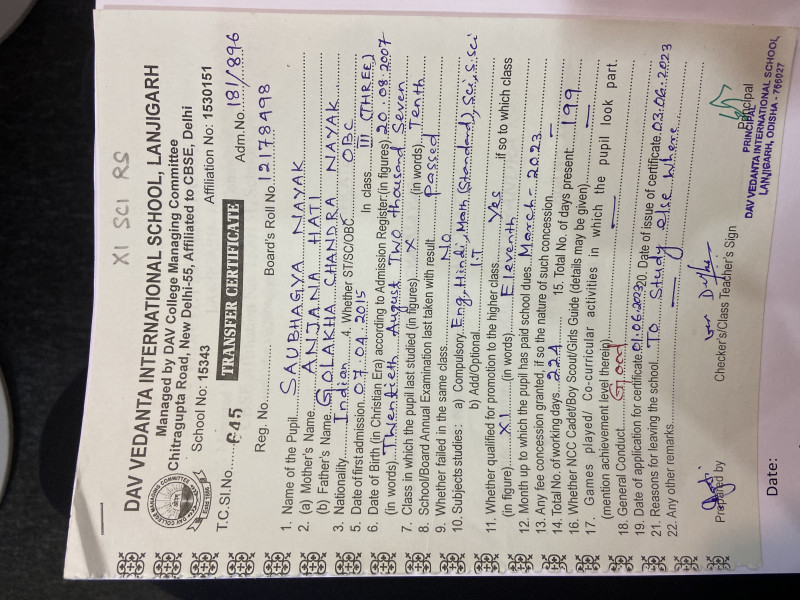 XI SCI RS
DAV VEDANTA INTERNATIONAL SCHOOL, LANJIGARH
Managed by DAV College Managing Committee
Chitragupta Road, New Delhi-55, Affiliated to CBSE, Delhi
School No: 15343 Affiliation No: 1530151
T.C.Sl.No. 645 TRANSFER CERTIFICATE Adm.No. 181/896
Reg. No. Board's Roll No. 12178498
1. Name of the Pupil SAUBHAGYA NAYAK
2. (a) Mother's Name ANJANA HATI
(b) Father's Name GOLAKHA CHANDRA NAYAK
3. Nationality Indian 4. Whether ST/SC/OBC OBC
5. Date of first admission 07.04.2015 In class III (THREE)
6. Date of Birth (in Christian Era) according to Admission Register (in figures) 20.08.2007
(in words) Thwentieth August Two thousand Seven
7. Class in which the pupil last studied (in figures) X (in words) Tenth
8. School/Board Annual Examination last taken with result Passed
9. Whether failed in the same class NO
10. Subjects studies : a) Compulsory Eng, Hindi, Math (Standard), Sci, S.sci
b) Add/Optional I.T
11. Whether qualified for promotion to the higher class Yes if so to which class
(in figure) XI (in words) Eleventh
12. Month up to which the pupil has paid school dues March - 2023
13. Any fee concession granted, if so the nature of such concession —
14. Total No. of working days 224 15. Total No. of days present 199
16. Whether NCC Cadet/Boy Scout/Girls Guide (details may be given) —
17. Games played/ Co-curricular activities in which the pupil look part.
(mention achievement level thereIp) —
18. General Conduct Good
19. Date of application for certificate 01.06.2023 20. Date of issue of certificate 03.06.2023
21. Reasons for leaving the school To Study else where
22. Any other remarks —
Prepared by Checker's/Class Teacher's Sign Principal
PRINCIPAL
DAV VEDANTA INTERNATIONAL SCHOOL
LANJIGARH, ODISHA - 766027
Date: